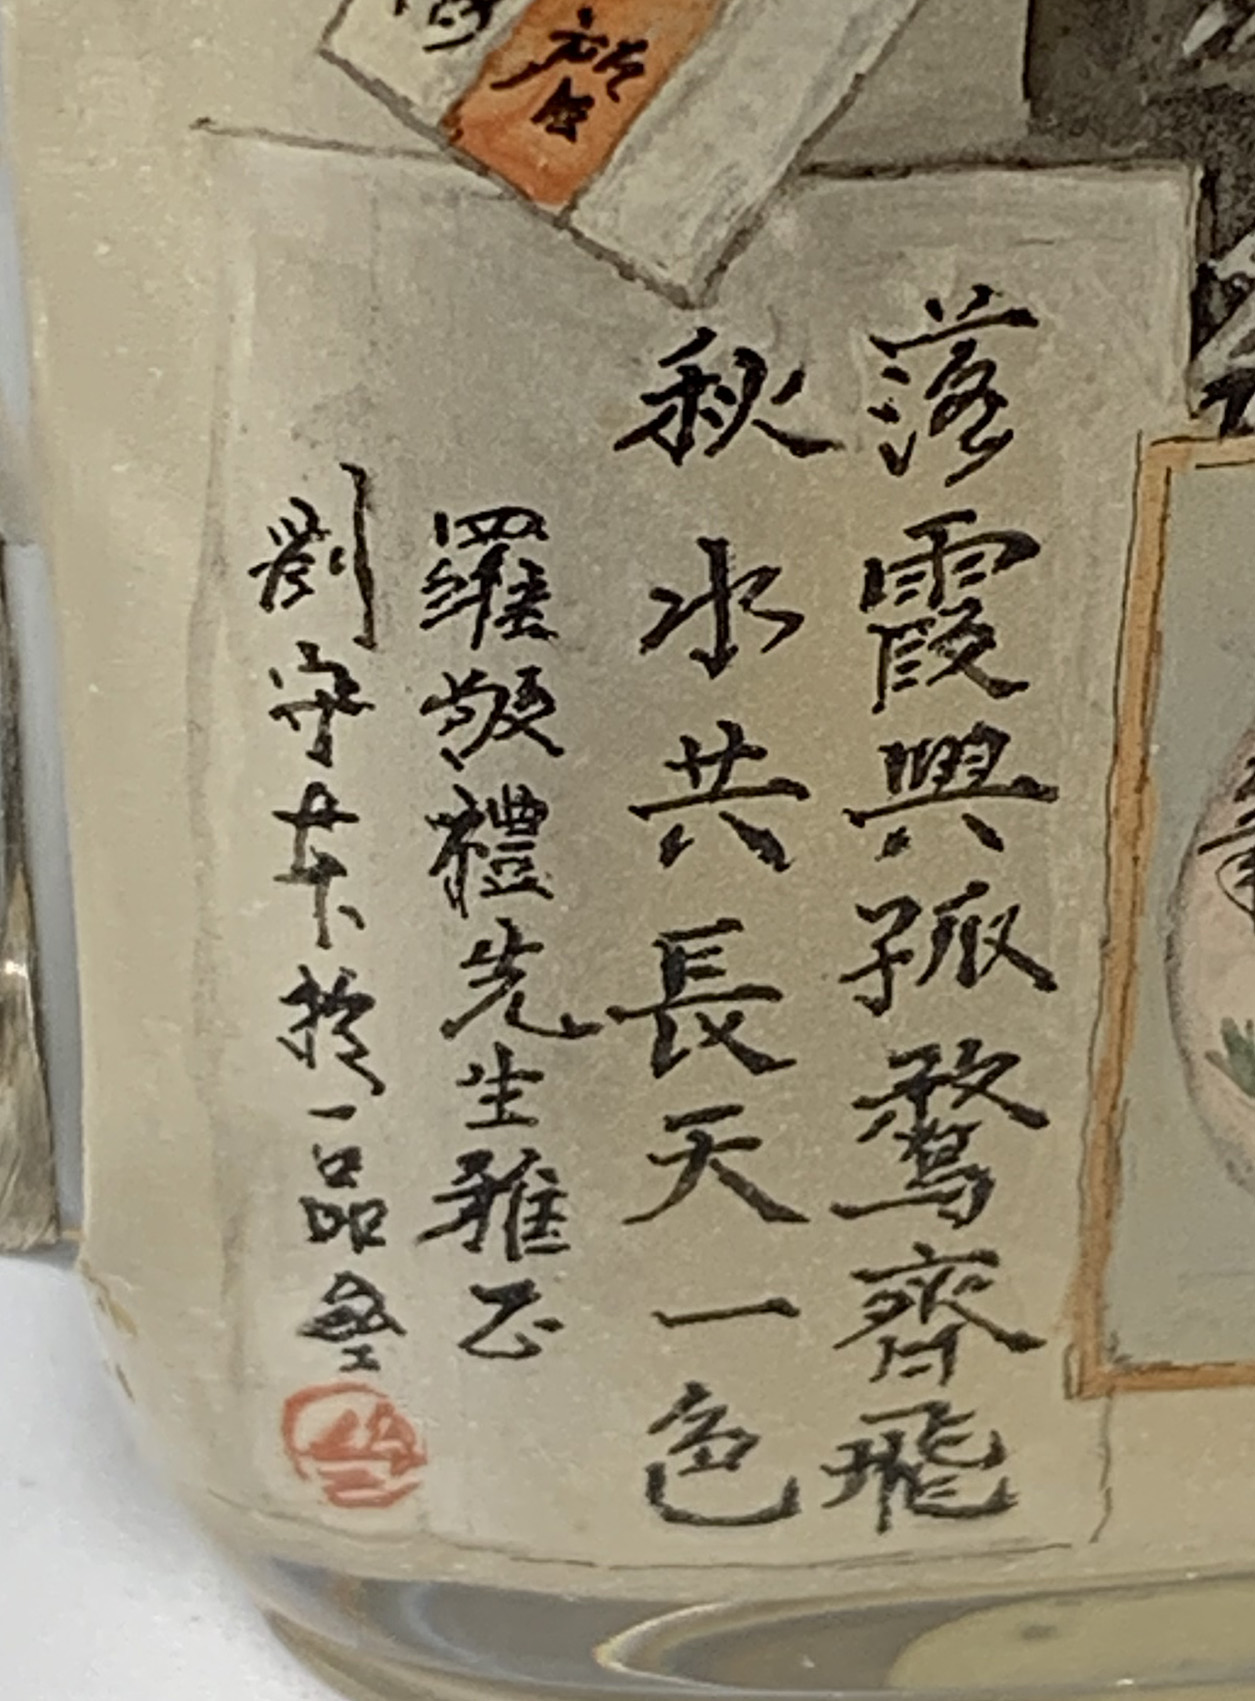 落霞與孤鶩齊飛
秋水共長天一色
羅敬禮先生雅正
劉守本扵一品